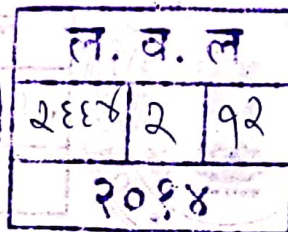 ल. व. ल
२६६४ २ १२
२०१४